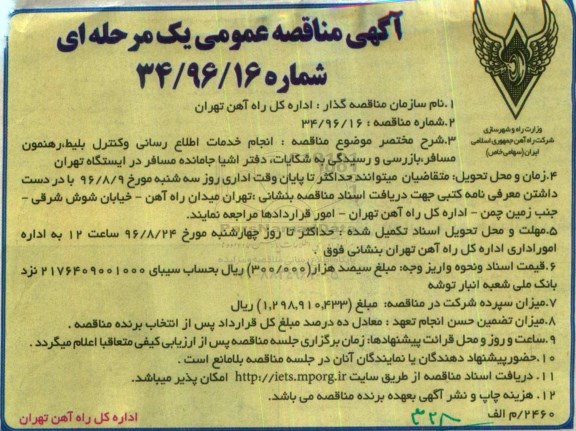 آگهی مناقصه عمومی یک مرحله ای
شماره ۳۴/۹۶/۱۶
وزارت راه و شهرسازی
شرکت راه آهن جمهوری اسلامی
ایران(سهامی خاص)
۱.نام سازمان مناقصه گذار : اداره کل راه آهن تهران
۲.شماره مناقصه : ۳۴/۹۶/۱۶
۳.شرح مختصر موضوع مناقصه : انجام خدمات اطلاع رسانی وکنترل بلیط،رهنمون
مسافر،بازرسی و رسیدگی به شکایات، دفتر اشیا جامانده مسافر در ایستگاه تهران
۴.زمان و محل تحویل: متقاضیان میتوانند حداکثر تا پایان وقت اداری روز سه شنبه مورخ ۹۶/۸/۹ با در دست
داشتن معرفی نامه کتبی جهت دریافت اسناد مناقصه بنشانی :تهران میدان راه آهن - خیابان شوش شرقی -
جنب زمین چمن - اداره کل راه آهن تهران - امور قراردادها مراجعه نمایند.
۵.مهلت و محل تحویل اسناد تکمیل شده : حداکثر تا روز چهارشنبه مورخ ۹۶/۸/۲۴ ساعت ۱۲ به اداره
اموراداری اداره کل راه آهن تهران بنشانی فوق .
۶.قیمت اسناد ونحوه واریز وجه: مبلغ سیصد هزار(۳۰۰/۰۰۰) ریال بحساب سیبای ۲۱۷۶۴۰۹۰۰۱۰۰۰ نزد
بانک ملی شعبه انبار توشه
۷.میزان سپرده شرکت در مناقصه: مبلغ (۱,۲۹۸,۹۱۰,۴۳۳) ریال
۸.میزان تضمین حسن انجام تعهد : معادل ده درصد مبلغ کل قرارداد پس از انتخاب برنده مناقصه .
۹.ساعت و روز و محل قرائت پیشنهادها: زمان برگزاری جلسه مناقصه پس از ارزیابی کیفی متعاقبا اعلام میگردد .
۱۰.حضورپیشنهاد دهندگان یا نمایندگان آنان در جلسه مناقصه بلامانع است .
۱۱. دریافت اسناد مناقصه از طریق سایت http://iets.mporg.ir امکان پذیر میباشد.
۱۲. هزینه چاپ و نشر آگهی بعهده برنده مناقصه می باشد.
۲۴۶۰/م الف
۳۲۸
اداره کل راه آهن تهران